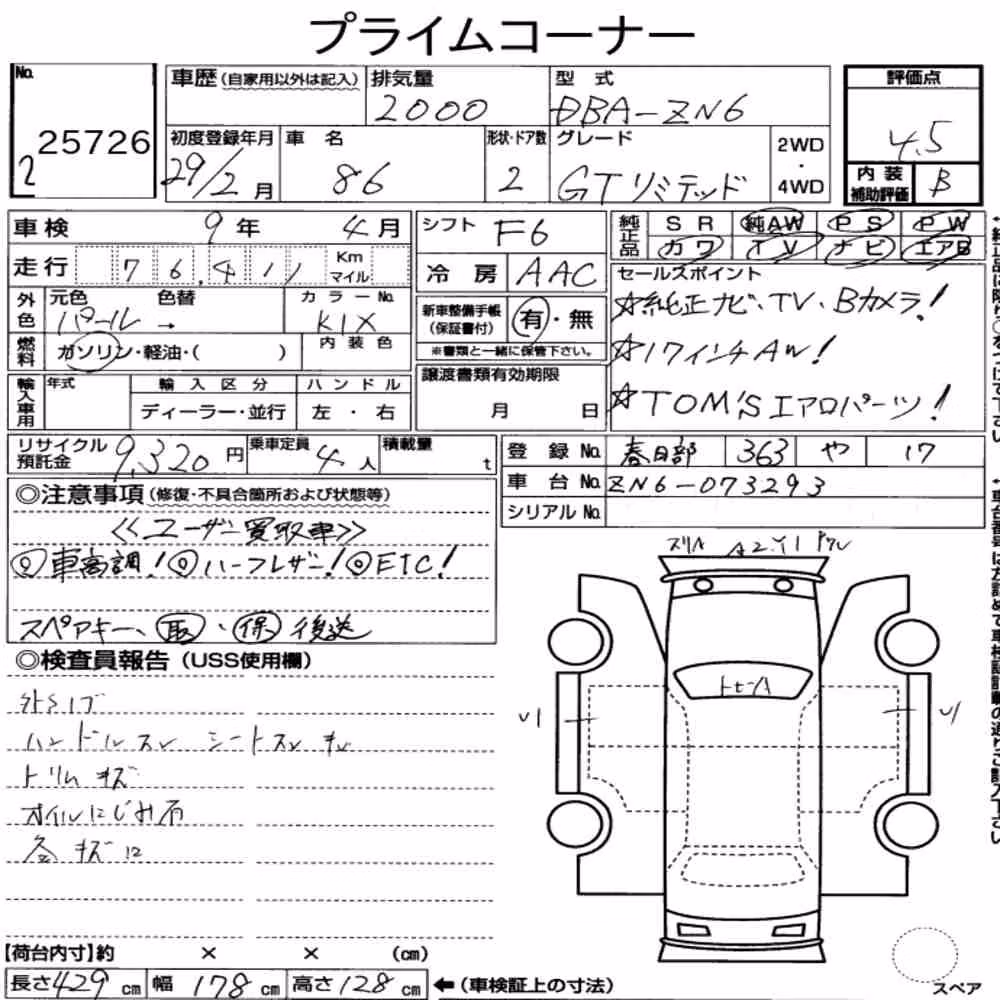 プライムコーナー
No. 2 25726
車歴（自家用以外は記入）
排気量 2000
型式 DBA-ZN6
評価点 4.5
内装補助評価 B
初度登録年月 29/2月
車名 86
形状・ドア数 2
グレード GTリミテッド
2WD・4WD
車検 9年 4月
シフト F6
純正品 SR 純AW PS PW
カワ TV ナビ エアB
走行 76,411 Km マイル
冷房 AAC
セールスポイント
☆純正ナビ、TV、Bカメラ！
☆17インチAW！
☆TOM'Sエアロパーツ！
外色 元色 パール → 色替
カラーNo. K1X
新車整備手帳（保証書付） 有・無
※書類と一緒に保管下さい。
燃料 ガソリン・軽油・（ ）
内装色
輸入車用 年式 輸入区分 ハンドル
ディーラー・並行 左・右
譲渡書類有効期限
月 日
リサイクル預託金 9,320円
乗車定員 4人
積載量 t
登録No. 春日部 363 や 17
車台No. ZN6-073293
シリアルNo.
◎注意事項（修復・不具合箇所および状態等）
<<ユーザー買取車>>
◎車高調！◎ハーフレザー！◎ETC！
スペアキー、取・保 後送
◎検査員報告（USS使用欄）
外S1ブ
ハンドルスレ シートスレ キレ
トリム キズ
オイルにじみ有
下 A2 Y1
V1
V1
【荷台内寸】約 × × （cm）
長さ429cm 幅178cm 高さ128cm ←（車検証上の寸法）
スペア